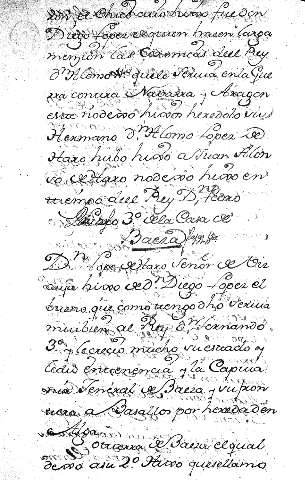 Diego Lopes de quien hasen larga
mension las Coronicas del Rey
Dn Alonso que le servia en la Gue
rra contra Navarra y Aragon
este no dexo hixos heredolo su
Hermano Dn Alonso Lopez de
Haro hubo hixo a Juan Alon
so de Haro no dexo hixo en
tiempo del Rey Dn Pedro
3º de la Casa de
Baeza
Dn Lope de Haro Señor de
hixo de Dn Diego Lopez el
bueno que como tengo dho servia
mui bien al Rey Dn Hernando
3º y le crecio mucho su estado y
le dio en tenencia y la Capita
nia General de Baeza y su fron
tera a Basallos por heredad en
de Baeza el qual
dexo a su 2º Hixo que se llamo